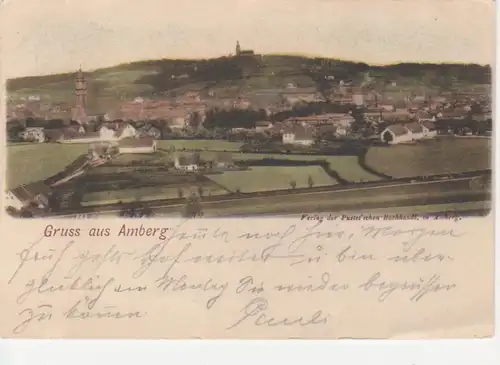 Verlag der Pustet'schen Buchhandl. in Amberg.
Gruss aus Amberg.
Heute noch hier, Morgen
früh geht's Hof weiter u. bin über-
glücklich am Montag Sie wieder begrüßen
zu können. Pauli